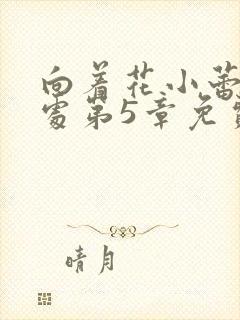 向着花小蕾
处第5章免
晴月